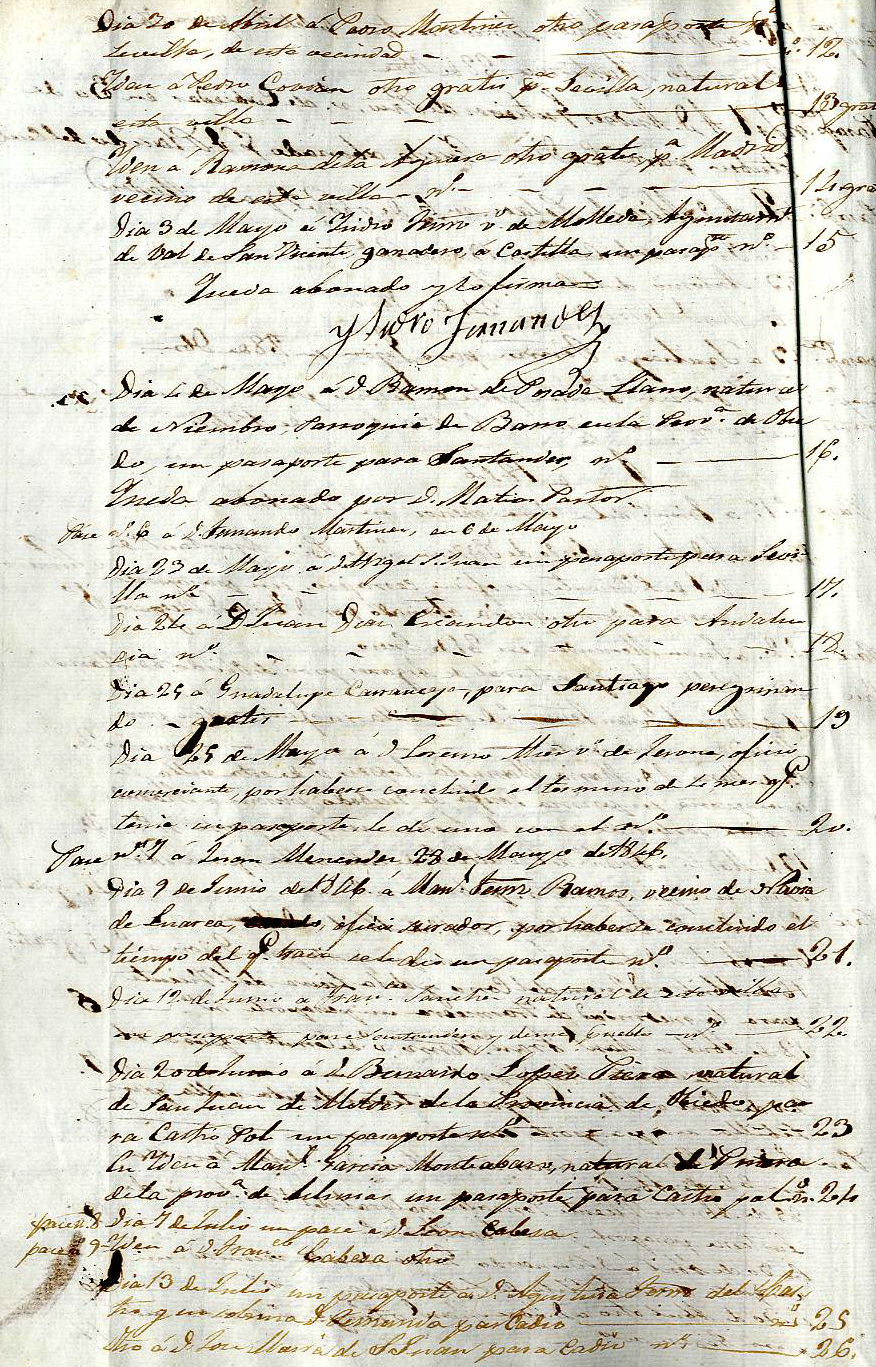 Dia 20 de Abril á Pedro Martinez otro pasaporte pª
Sevilla, de esta vecindad nº 12.
Iden á Pedro Covian otro gratis pª Sevilla, natural
esta villa 13 gra
Iden á Ramona de la otro gratis pª Madrid
vecino de esta villa nº 14 gra
Dia 3 de Mayo á Ysidro Fernz vº de Molleda, Ayuntamt
de Val de San Vicente, ganadero, á Castilla un pasapte nº 15
Queda abonado y lo firma
Ysidro Fernandez
Dia 4 de Mayo á D. Ramon de Posada Llano, natural
de Niembro, Parroquia de Barro en la Provª de Ovie
do, un pasaporte para Santander, nº 16.
Queda abonado por D. Matia Pastor.
Pase nº 6 á D. Fernando Martinez, en 6 de Mayo
Dia 23 de Mayo á D. Angel S. Juan un pasaporte para Sevi-
lla nº 17.
Dia 24 á D Juan Diaz Escandon otro para Andalu
cia nº 18.
Dia 25 á Guadalupe para Santiago peregrinan
do gratis 19
Dia 25 de Mayo á D Lorenzo Mier vº de oficio
comerciante, por haberse concluido el termino de 4 mes qe
tenia un pasaporte le dí uno con el nº 20.
Pase nº 7 á Juan Menendez 28 de Mayo de 1846.
Dia 9 de Junio de 1846 á Manl Fernz Ramos, vecino de
de Luarca, oficio por haberse concluido el
tiempo del qe traia se le dió un pasaporte nº 21.
Dia 12 de Junio a Franco Sanchez natural de esta villa
un pasaporte para Santander y demas pueblos nº 22
Dia 20 de Junio a D. Bernardo Lopez natural
de San Juan de de la Provincia de Oviedo, pa
ra Castro Pol un pasaporte nº 23
En Iden á Manl Garcia natural de
de la provª de un pasaporte para Castro pol nº 24
pace n. 8 Dia 7 de Julio un pace á D. Leon Cabeza
pace n 9 Iden á D. Franco Cabeza otro
Dia 13 de Julio un pasaporte á D. Agustina Fernz del
tro y su sobrina D. Fernanda par Cadiz nº 25
Otro á D. Jose Maria de S. Juan para Cadiz nº 26.